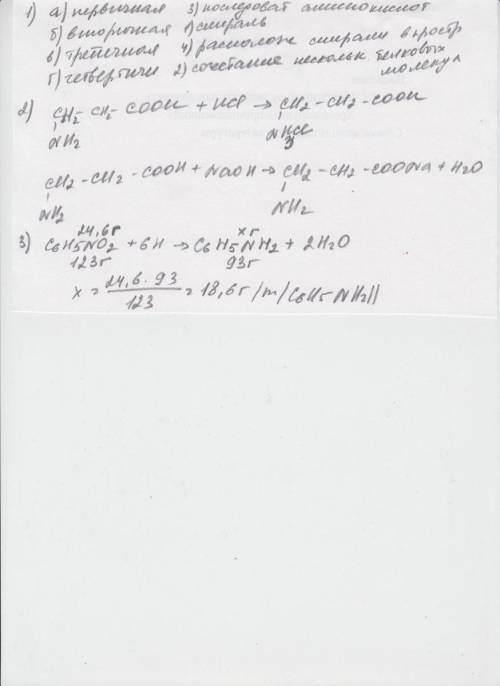 1) а) первичная 3) последоват аминокислот
б) вторичная 1) спираль
в) третичная 4) располож спирали в простр
г) четвертичн 2) сочетание нескольк белковых
молекул
2) CH2 - CH2 - COOH + HCl → CH2 - CH2 - COOH
NH2 NH3Cl
CH2 - CH2 - COOH + NaOH → CH2 - CH2 - COONa + H2O
NH2 NH2
24,6г xг
3) C6H5NO2 + 6H → C6H5NH2 + 2H2O
123г 93г
x = 24,6 · 93 / 123 = 18,6г /m/C6H5NH2//